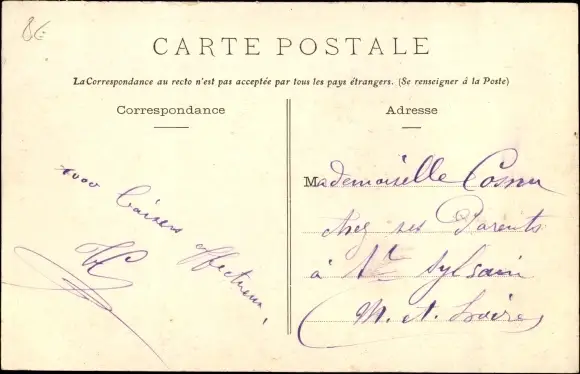 CARTE POSTALE
La Correspondance au recto n'est pas acceptée par tous les pays étrangers. (Se renseigner à la Poste)
Correspondance
1000 baisers affectueux,
Adresse
Mademoiselle Cosnu
chez ses Parents
à St Sylvain
M. et. Loire